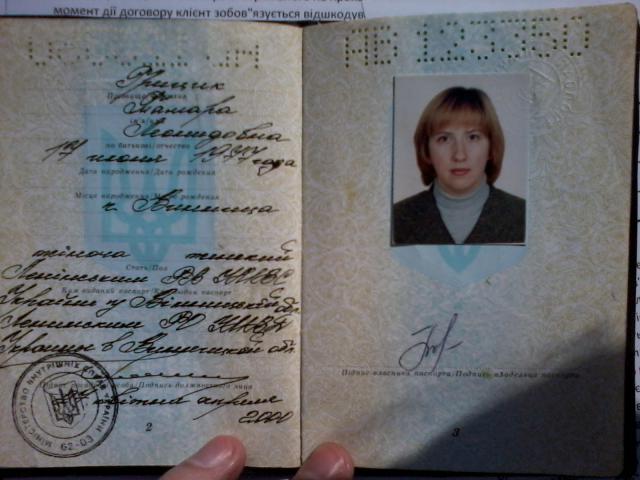 момент дії договору клієнт зобов"язується відшкодув
АВ 123350
Грицик
Прізвище
Тамара
Ім'я
Леонидовна
по батькові/отчество
17 июня года
Дата народження/Дата рождения
Місце народження/Место рождения
г. Винница
жіноча женский
Стать/Пол
Ленінським РВ УМВС
Ким виданий паспорт/Кем выдан паспорт
України у Вінницькій обл.
Ленинским РО УМВД
Украины в Винницкой обл.
Підпис посадової особи/Подпись должностного лица
квітня апреля
2000
МІНІСТЕРСТВО ВНУТРІШНІХ СПРАВ УКРАЇНИ
62-03
2
Підпис власника паспорта/Подпись владельца паспорта
3